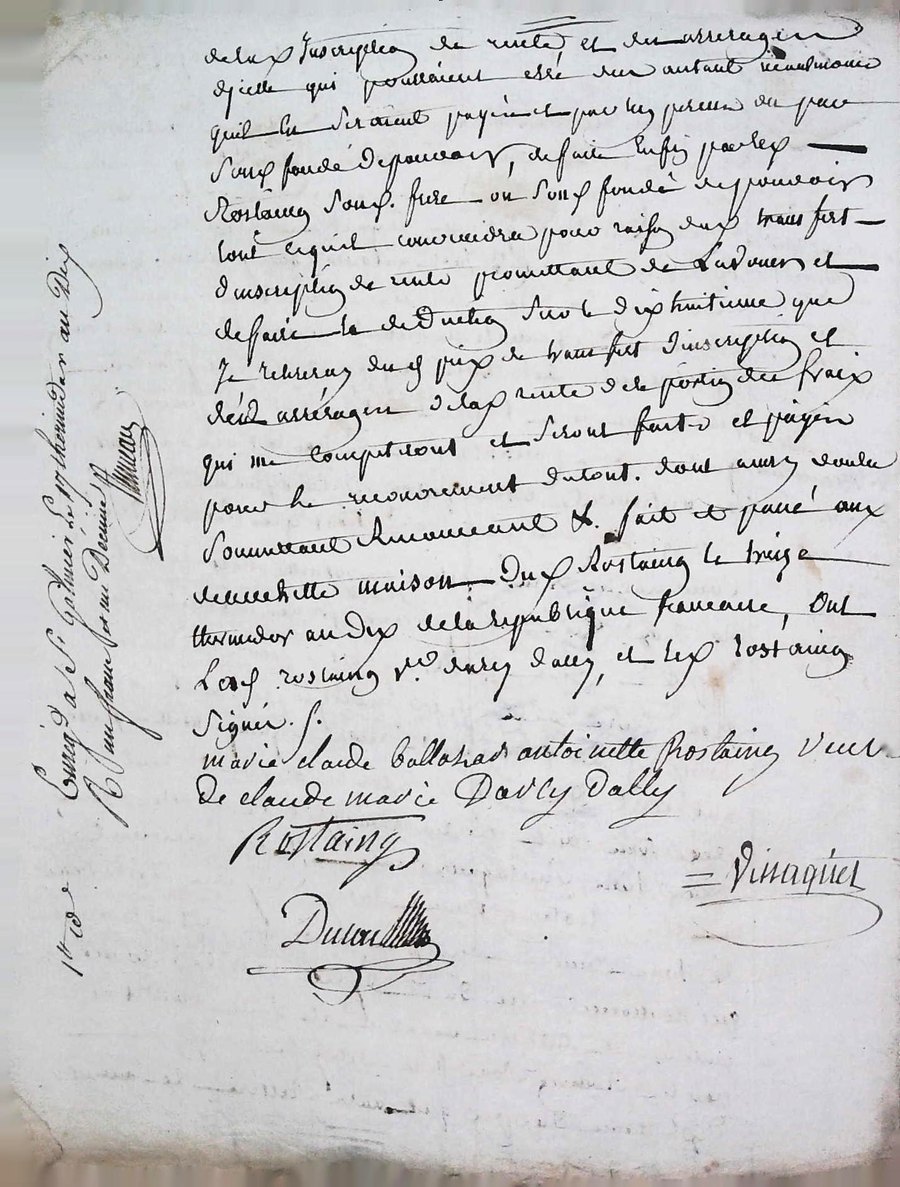 de lad. Inscription de rente et des arrerages
d'icelle qui pourraient etre dus autant neanmoins
quil lui seraient payés et par les preneur ou par
son fondé de pouvoir, de faire Enfin par led.
Rostaing Son. frere ou Son fondé de pouvoir
tout ce quil conviendra pour raison dud. transfert
d'inscription de rente promettant de L'avouer et
de faire la deduction sur le dixhuitieme que
Je retireray dud. prix de transfert d'inscription et
desd. arrérages de lad. rente de la portion des fraix
qui me competeront et seront faits et payés
pour le recouvrement du tout. dont
Soumettant Renonceant &. fait et passé aux
maison Dud. Rostaing le treize
thermidor an dix de la republique francaise, Ont
Lad. rostaing Ve. darcy dally, et led. rostaing
Signés.
marie claude balthazard antoinette Rostaing veuve
De claude marie Darcy Dally
Rostaing
Vissaguet
Enreg. a St. Galmier Le 17 thermidor an Dix
R. un franc Dixme